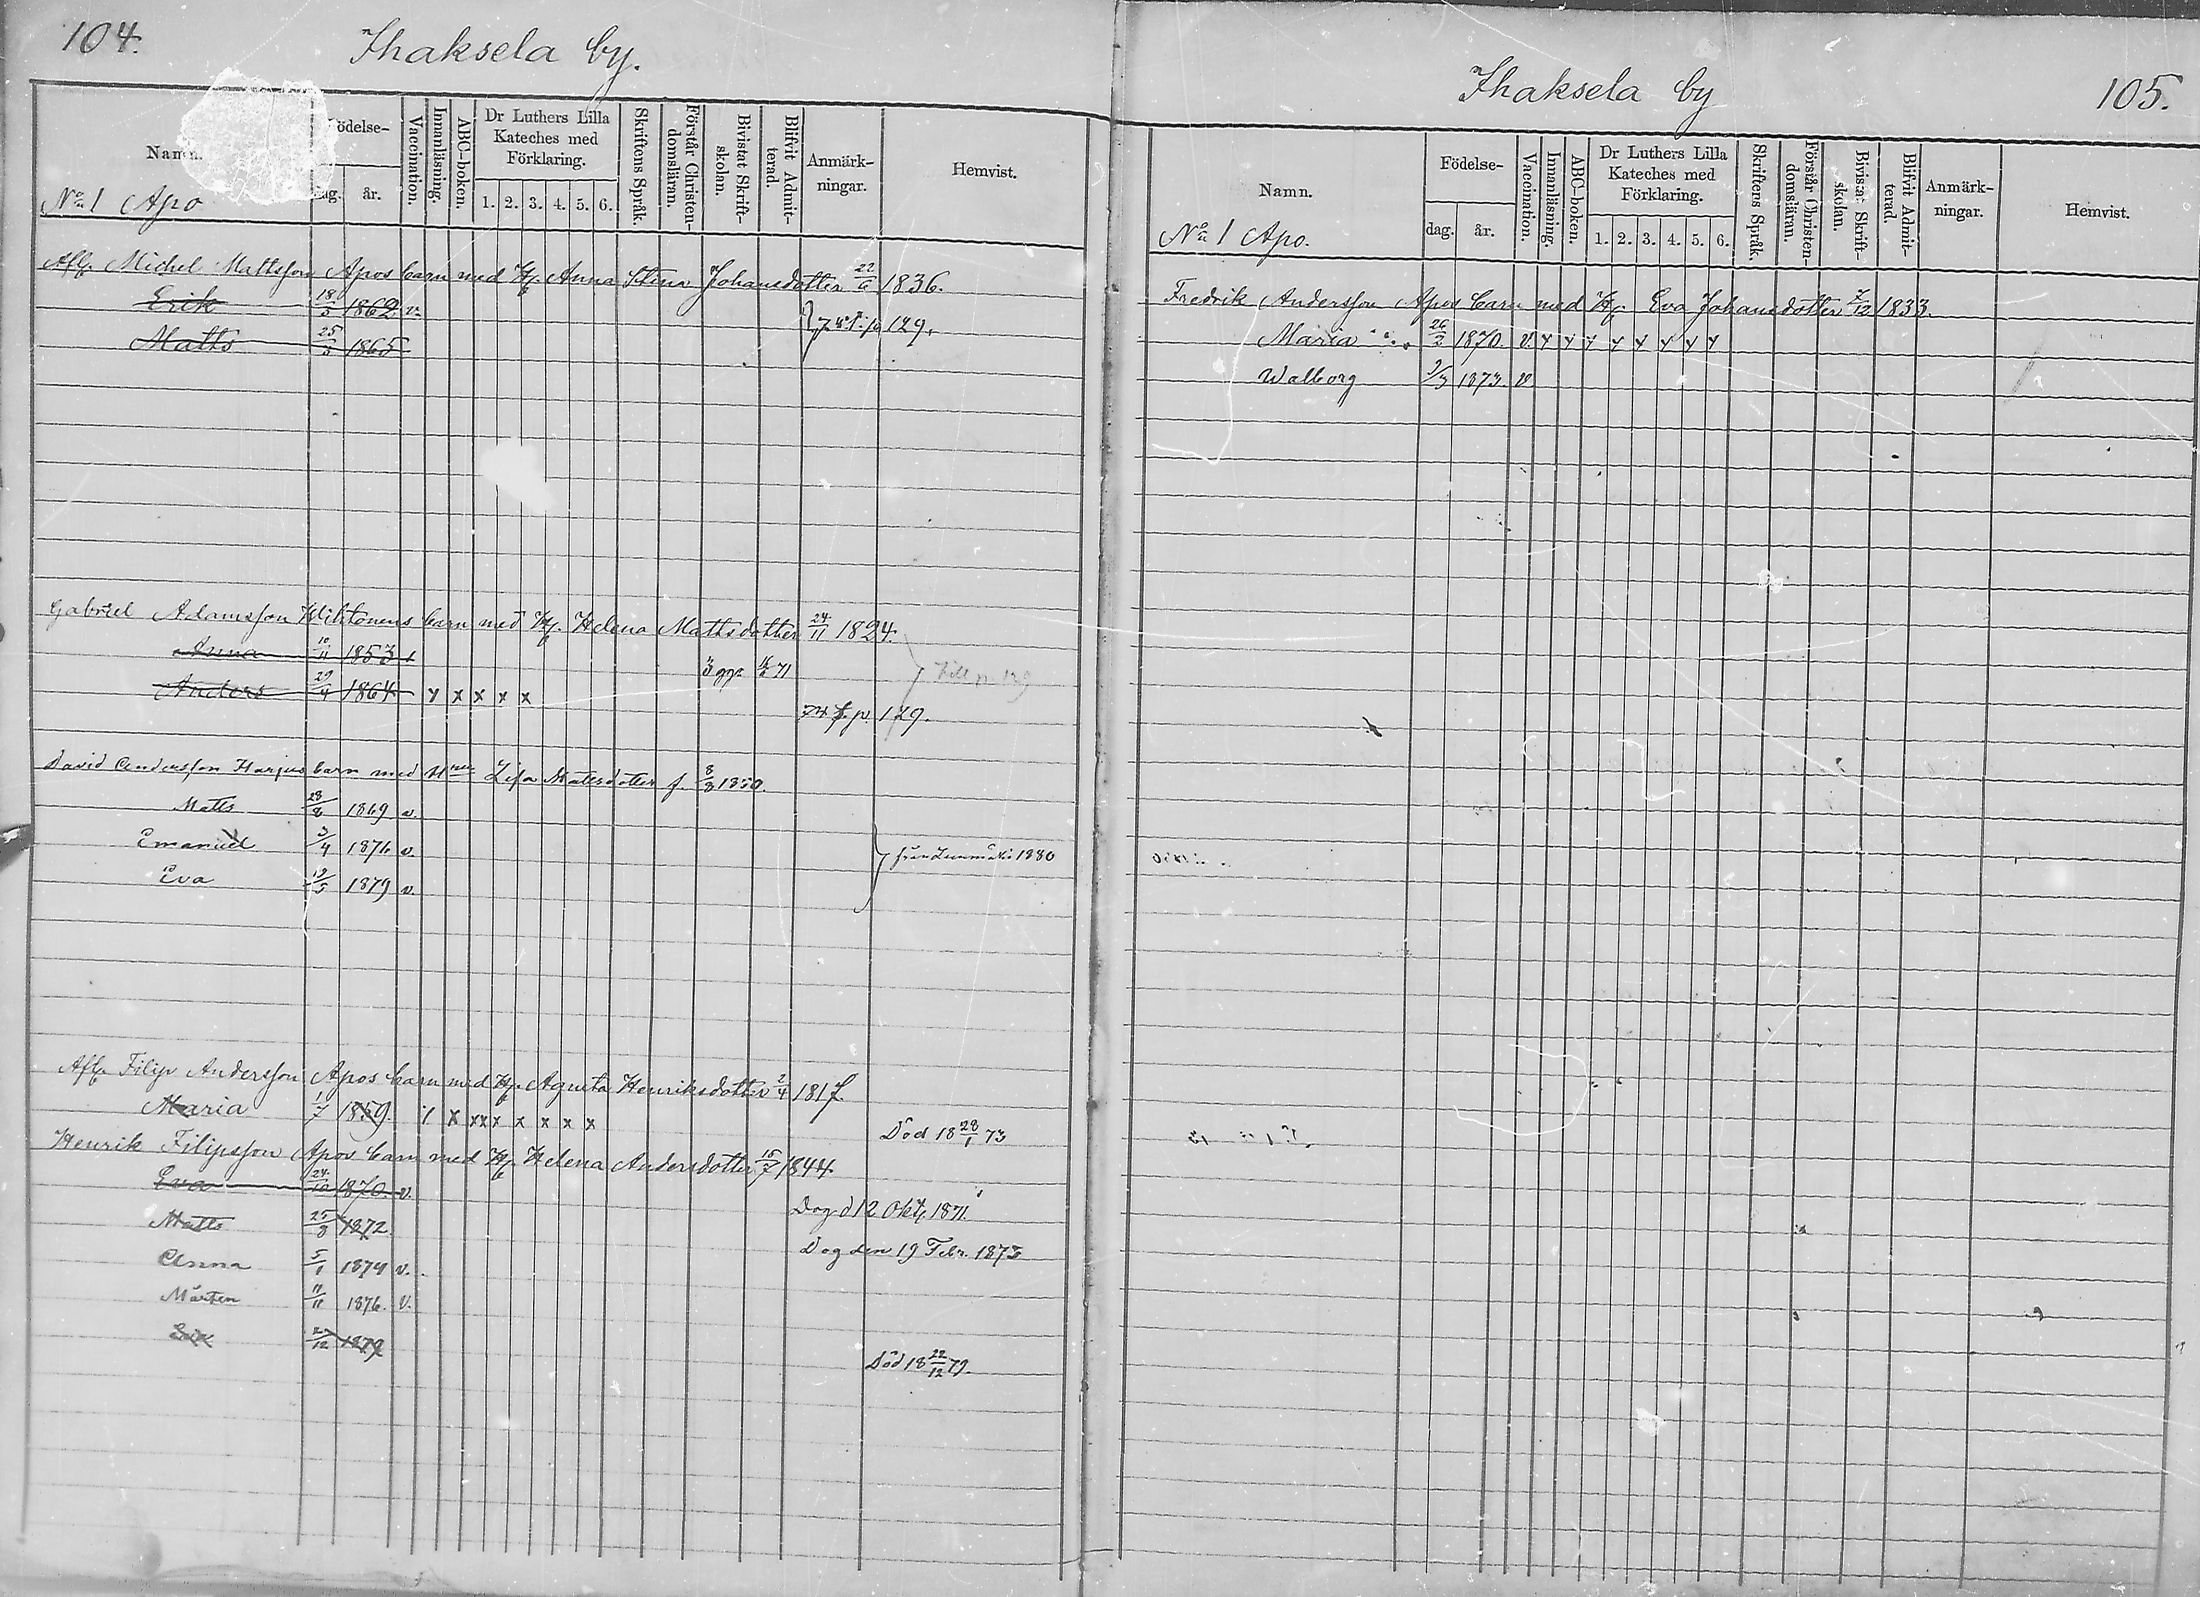 104.
Ihaksela by.
Namn.
Födelse-
dag.
år.
Vaccination.
Innanläsning.
ABC-boken.
Dr Luthers Lilla
Kateches med
Förklaring.
1. 2. 3. 4. 5. 6.
Skriftens Språk.
Förstår Christen-
domsläran.
Bivistat Skrift-
skolan.
Blifvit Admit-
terad.
Anmärk-
ningar.
Hemvist.
No 1 Apo
Afl. Michel Mattsson Apos barn med H. Anna Stina Johansdotter 22/6 1836.
Erik 18/5 1862 v.
Matts 25/3 1865
p 129.
Gabriel Adamsson barn med H. Helena Mattsdotter 24/11 1824.
Anna 10/11 1853
3 71
Anders 29/4 1864 x x x x x
p. 129.
David Andersson Harjus barn med Lisa Matsdotter f. 8/8 1850.
Matts 28/8 1869 v.
Emanuel 3/4 1876 v.
från 1880
Eva 19/5 1879 v.
Afl. Filip Andersson Apos barn med H. Agneta Henriksdotter 2/4 1817
Maria 1/7 1859. x xxx x x x x
Död 18 28/1 73
Henrik Filipsson Apos barn med H. Helena Andersdotter 15/7 1844.
Eva 24/10 1870. v.
Dog d 12 Okt. 1871.
Matts 25/8 1872.
Dog den 19 Febr. 1873
Anna 5/1 1874 v.
Mårten 11/11 1876. v.
1879
Död 18 22/12 79.
Ihaksela by
105.
Namn.
Födelse-
dag.
år.
Vaccination.
Innanläsning.
ABC-boken.
Dr Luthers Lilla
Kateches med
Förklaring.
1. 2. 3. 4. 5. 6.
Skriftens Språk.
Förstår Christen-
domsläran.
Bivistat Skrift-
skolan.
Blifvit Admit-
terad.
Anmärk-
ningar.
Hemvist.
No 1 Apo.
Fredrik Andersson Apos barn med H. Eva Johansdotter 7/12 1833.
Maria 26/2 1870. v.
Walborg 1873. v